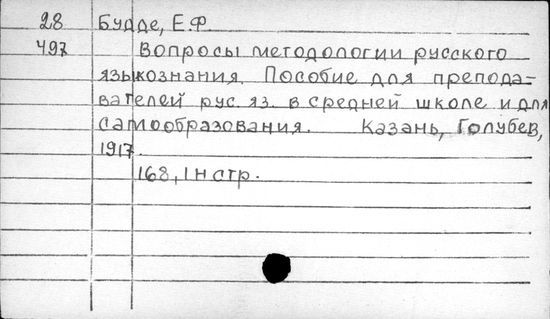 28 Будде, Е.Ф
497 Вопросы методологии русского
языкознания. Пособие для препода-
вателей рус. яз. в средней школе и для
самообразования. Казань, Голубев,
1917.
168, 1 н стр.